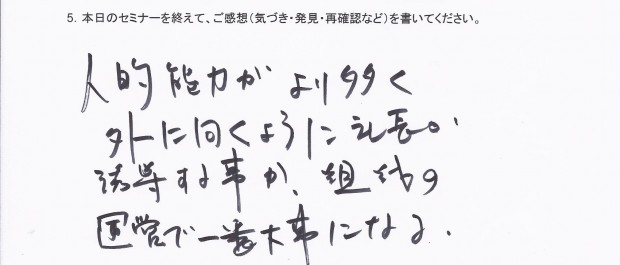 5. 本日のセミナーを終えて、ご感想（気づき・発見・再確認など）を書いてください。
人的能力がより多く
外に向くように社長が
誘導する事が、組織の
運営で一番大事になる。